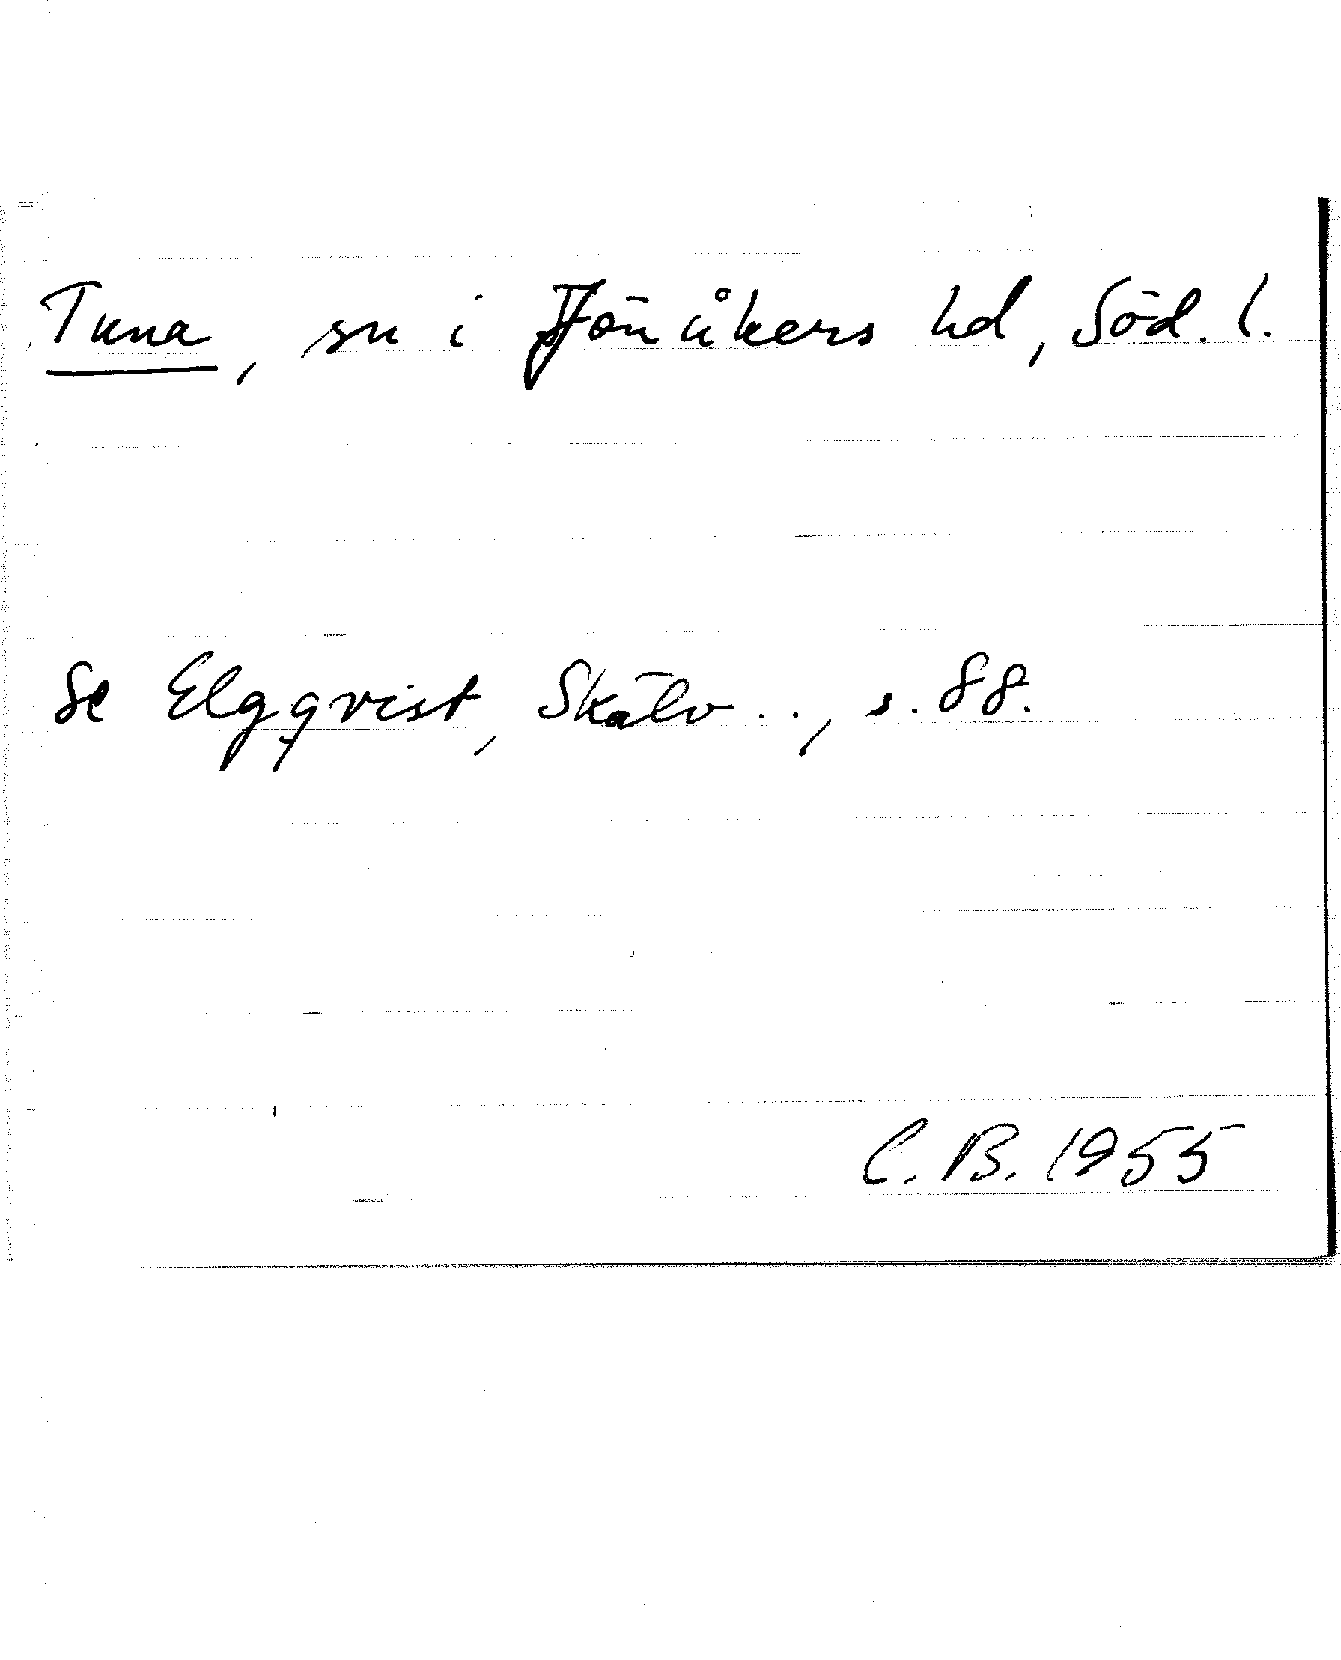 Tuna, sn i Jönåkers hd, Söd. l.
Se Elgqvist, Skälv . . , s. 88.
C. B. 1955